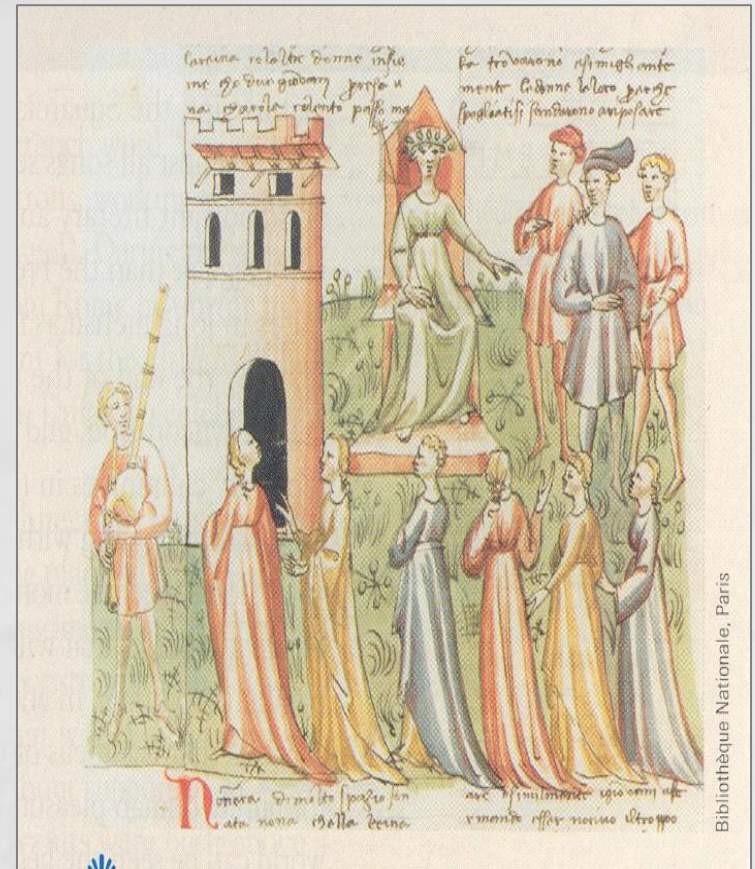 la reina co laltre donne insie
me & due giovani presa u
na charola co lento passo
fa trovarono e simigliante
mente le donne la loro
spogliatisi sandarono a riposare
Non era di molto spazio son
ata nona che lla Reina
e similmente i giovani
essere nocivo il troppo
Bibliothèque Nationale, Paris